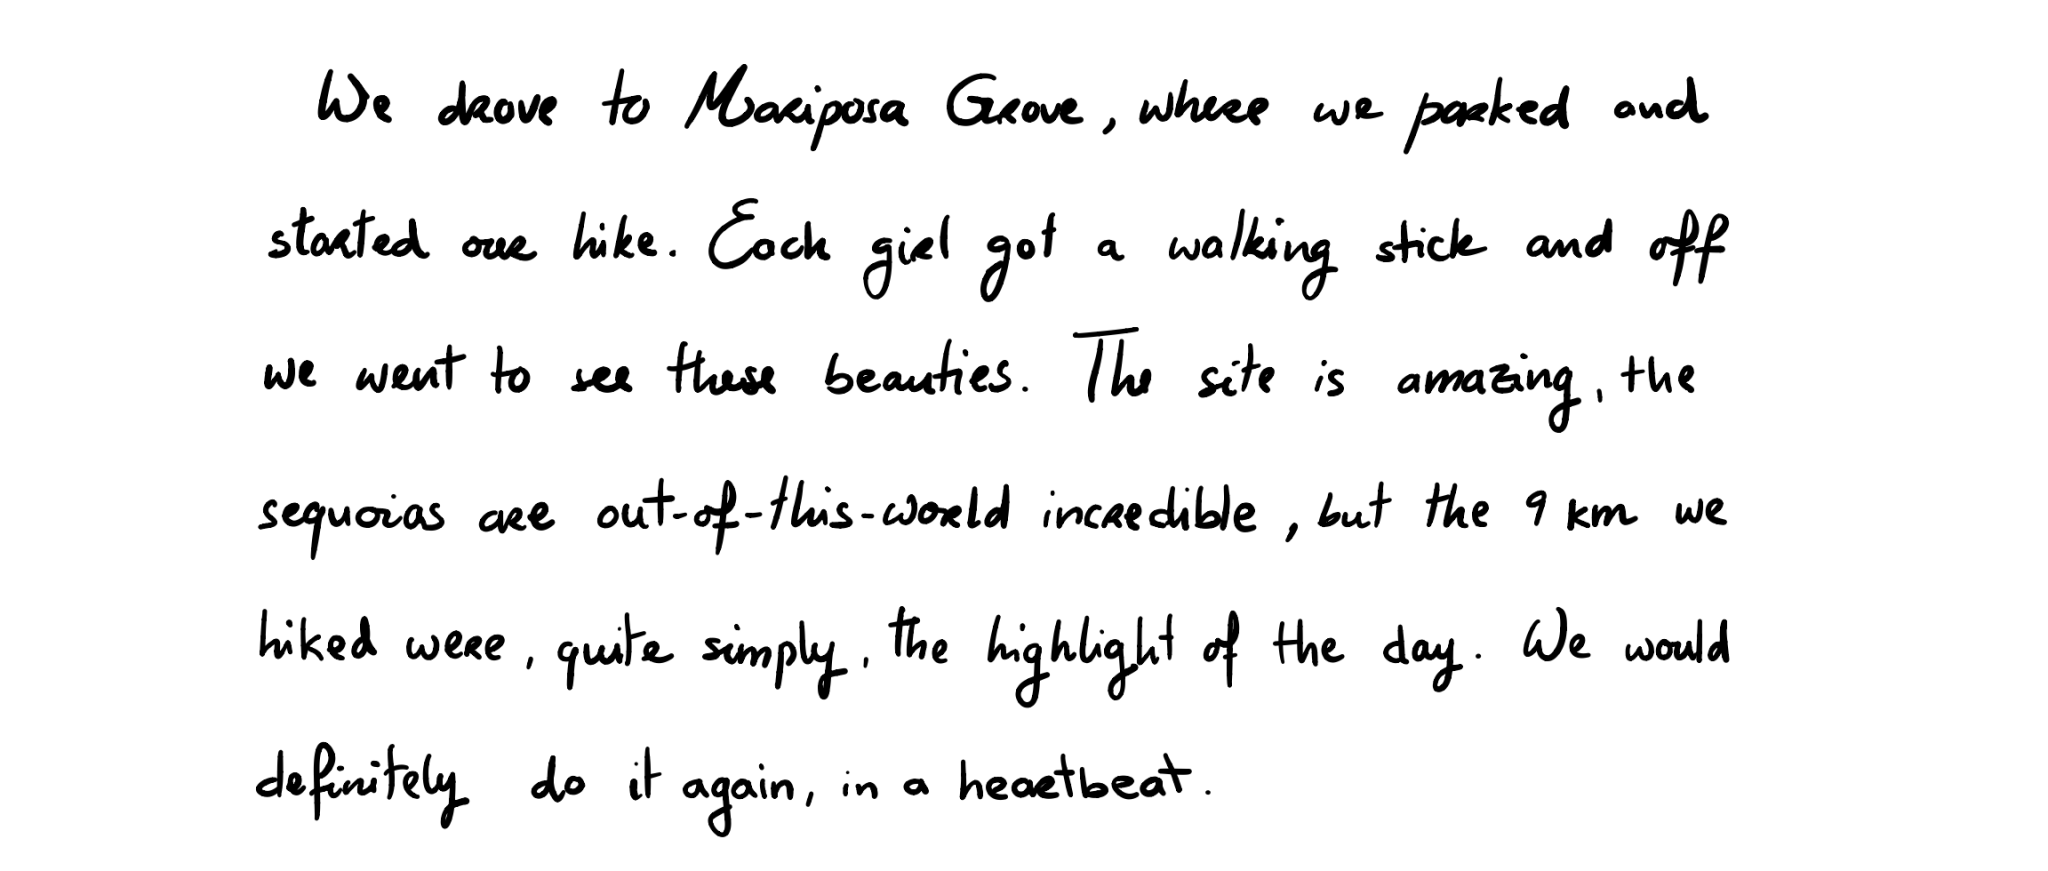 We drove to Mariposa Grove, where we parked and
started our hike. Each girl got a walking stick and off
we went to see these beauties. The site is amazing, the
sequoias are out-of-this-world incredible, but the 9 km we
hiked were, quite simply, the highlight of the day. We would
definitely do it again, in a heartbeat.